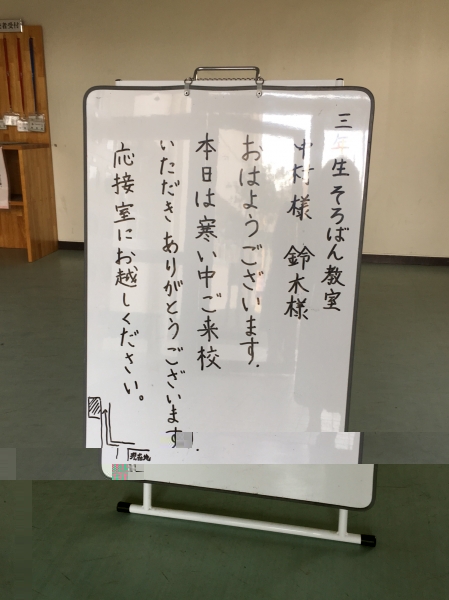 三年生そろばん教室
中村様 鈴木様
おはようございます.
本日は寒い中ご来校
いただきありがとうございます.
応接室にお越しください。
現在地